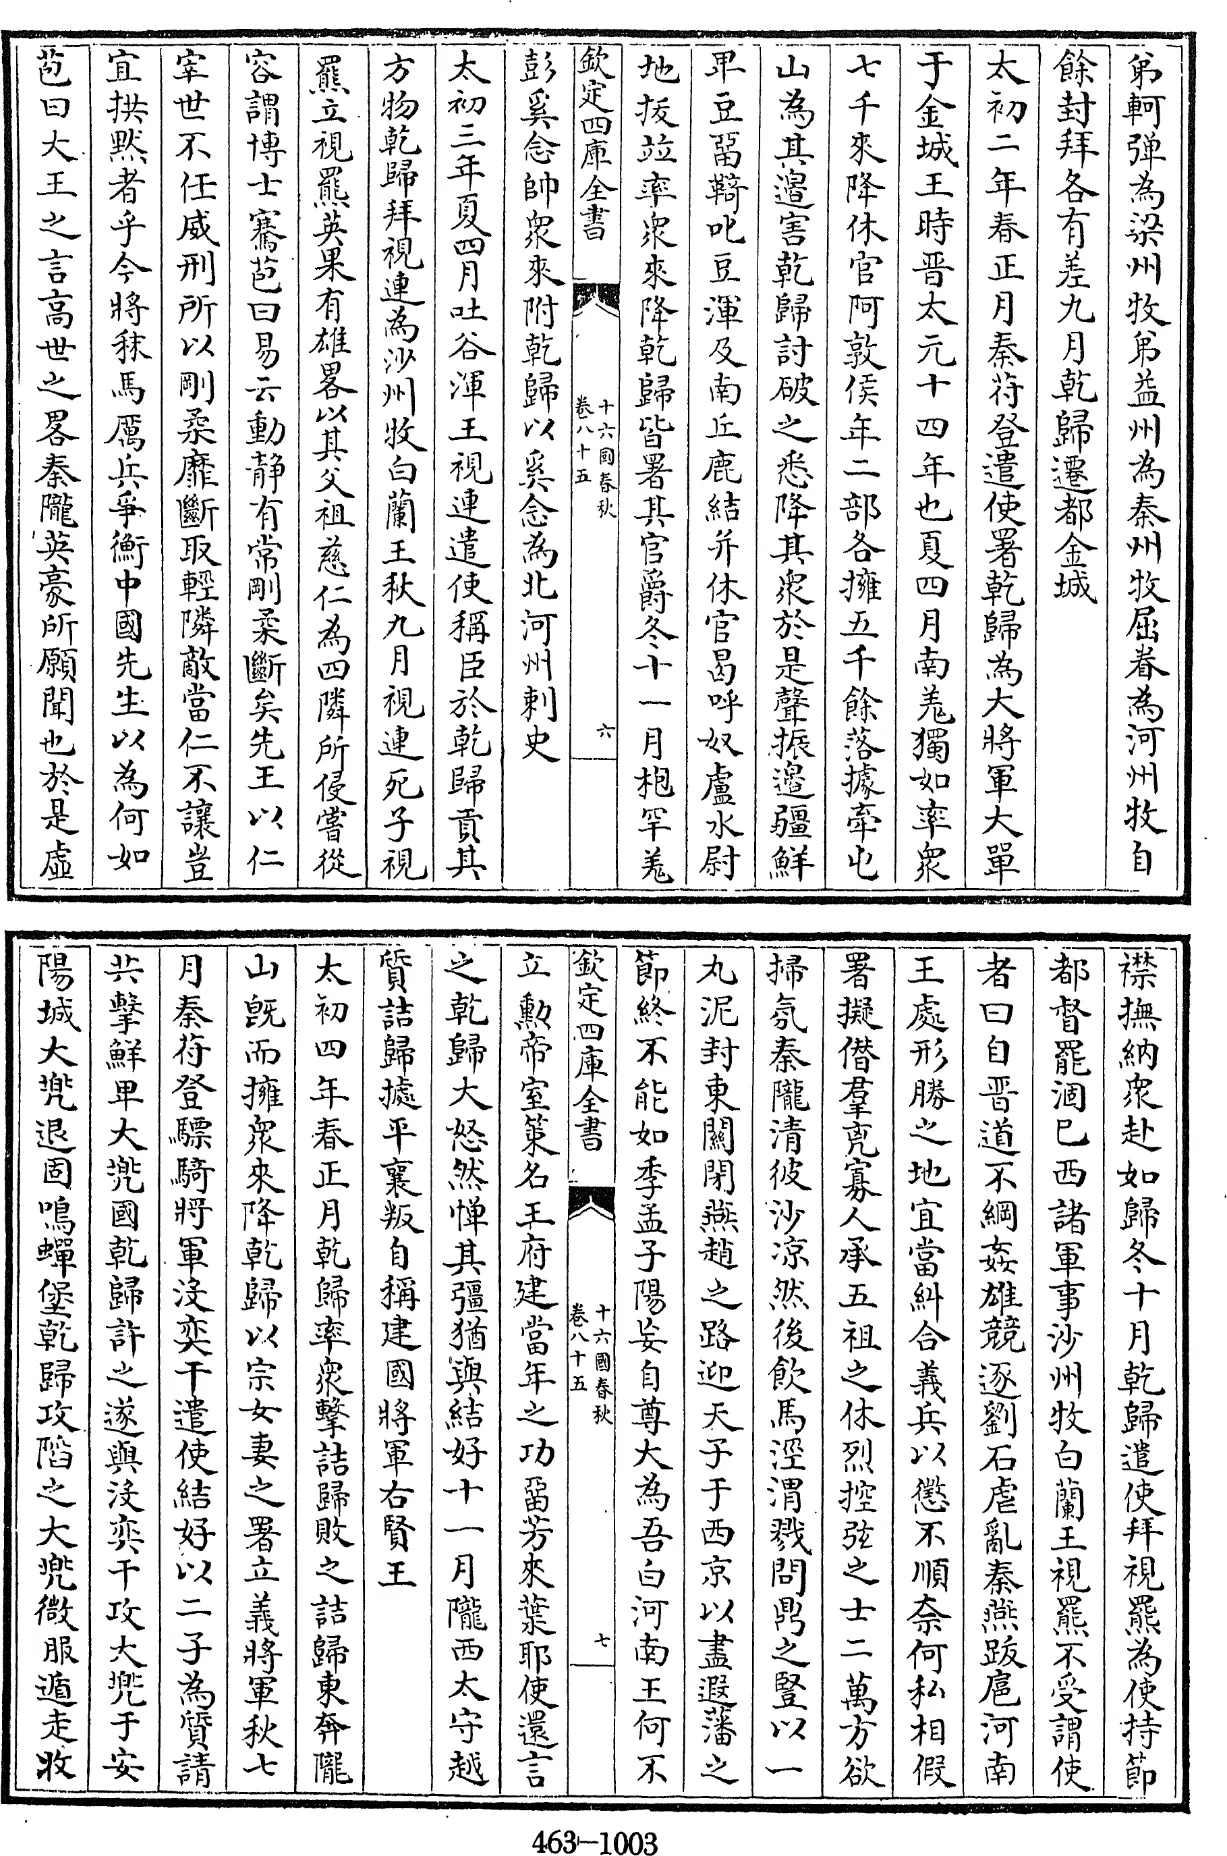 弟軻彈為梁州牧弟益州為秦州牧屈眷為河州牧自
餘封拜各有差九月乾歸遷都金城
太初二年春正月秦苻登遣使署乾歸為大將軍大單
于金城王時晉太元十四年也夏四月南羗獨如率衆
七千來降休官阿敦侯年二部各擁五千餘落據牽屯
山為其邉害乾歸討破之悉降其衆於是聲振邉疆鮮
卑豆留鞛叱豆渾及南丘鹿結并休官曷呼奴盧水尉
地抜竝率衆來降乾歸皆署其官爵冬十一月枹罕羗
彭奚念帥衆來附乾歸以奚念為北河州刺史
太初三年夏四月吐谷渾王視連遣使稱臣於乾歸貢其
方物乾歸拜視連為沙州牧白蘭王秋九月視連死子視
羆立視羆英果有雄畧以其父祖慈仁為四隣所侵嘗從
容謂博士騫苞曰易云動静有常剛柔斷矣先王以仁
宰世不任威刑所以剛柔靡斷取輕隣敵當仁不讓豈
宜拱黙者乎今將秣馬厲兵爭衡中國先生以為何如
苞曰大王之言高世之畧秦隴英豪所願聞也於是虛
欽定四庫全書
十六國春秋
卷八十五
六
襟撫納衆赴如歸冬十月乾歸遣使拜視羆為使持節
都督罷涸巳西諸軍事沙州牧白蘭王視羆不受謂使
者曰自晉道不綱姦雄競逐劉石虐亂秦燕跋扈河南
王處形勝之地宜當糾合義兵以懲不順奈何私相假
署擬僭羣兇寡人承五祖之休烈控弦之士二萬方欲
掃氛秦隴清彼沙凉然後飲馬涇渭戮問鼎之豎以一
丸泥封東關閉燕趙之路迎天子于西京以盡遐藩之
節終不能如季孟子陽妄自尊大為吾白河南王何不
立勲帝室策名王府建當年之功留芳來葉耶使還言
之乾歸大怒然憚其彊猶與結好十一月隴西太守越
質詰歸據平襄叛自稱建國將軍右賢王
太初四年春正月乾歸率衆擊詰歸敗之詰歸東奔隴
山旣而擁衆來降乾歸以宗女妻之署立義將軍秋七
月秦苻登驃騎將軍没奕干遣使結好以二子為質請
共擊鮮卑大兠國乾歸許之遂與没奕干攻大兠于安
陽城大兠退固鳴蟬堡乾歸攻陷之大兠微服遁走收
欽定四庫全書
十六國春秋
卷八十五
七
463-1003